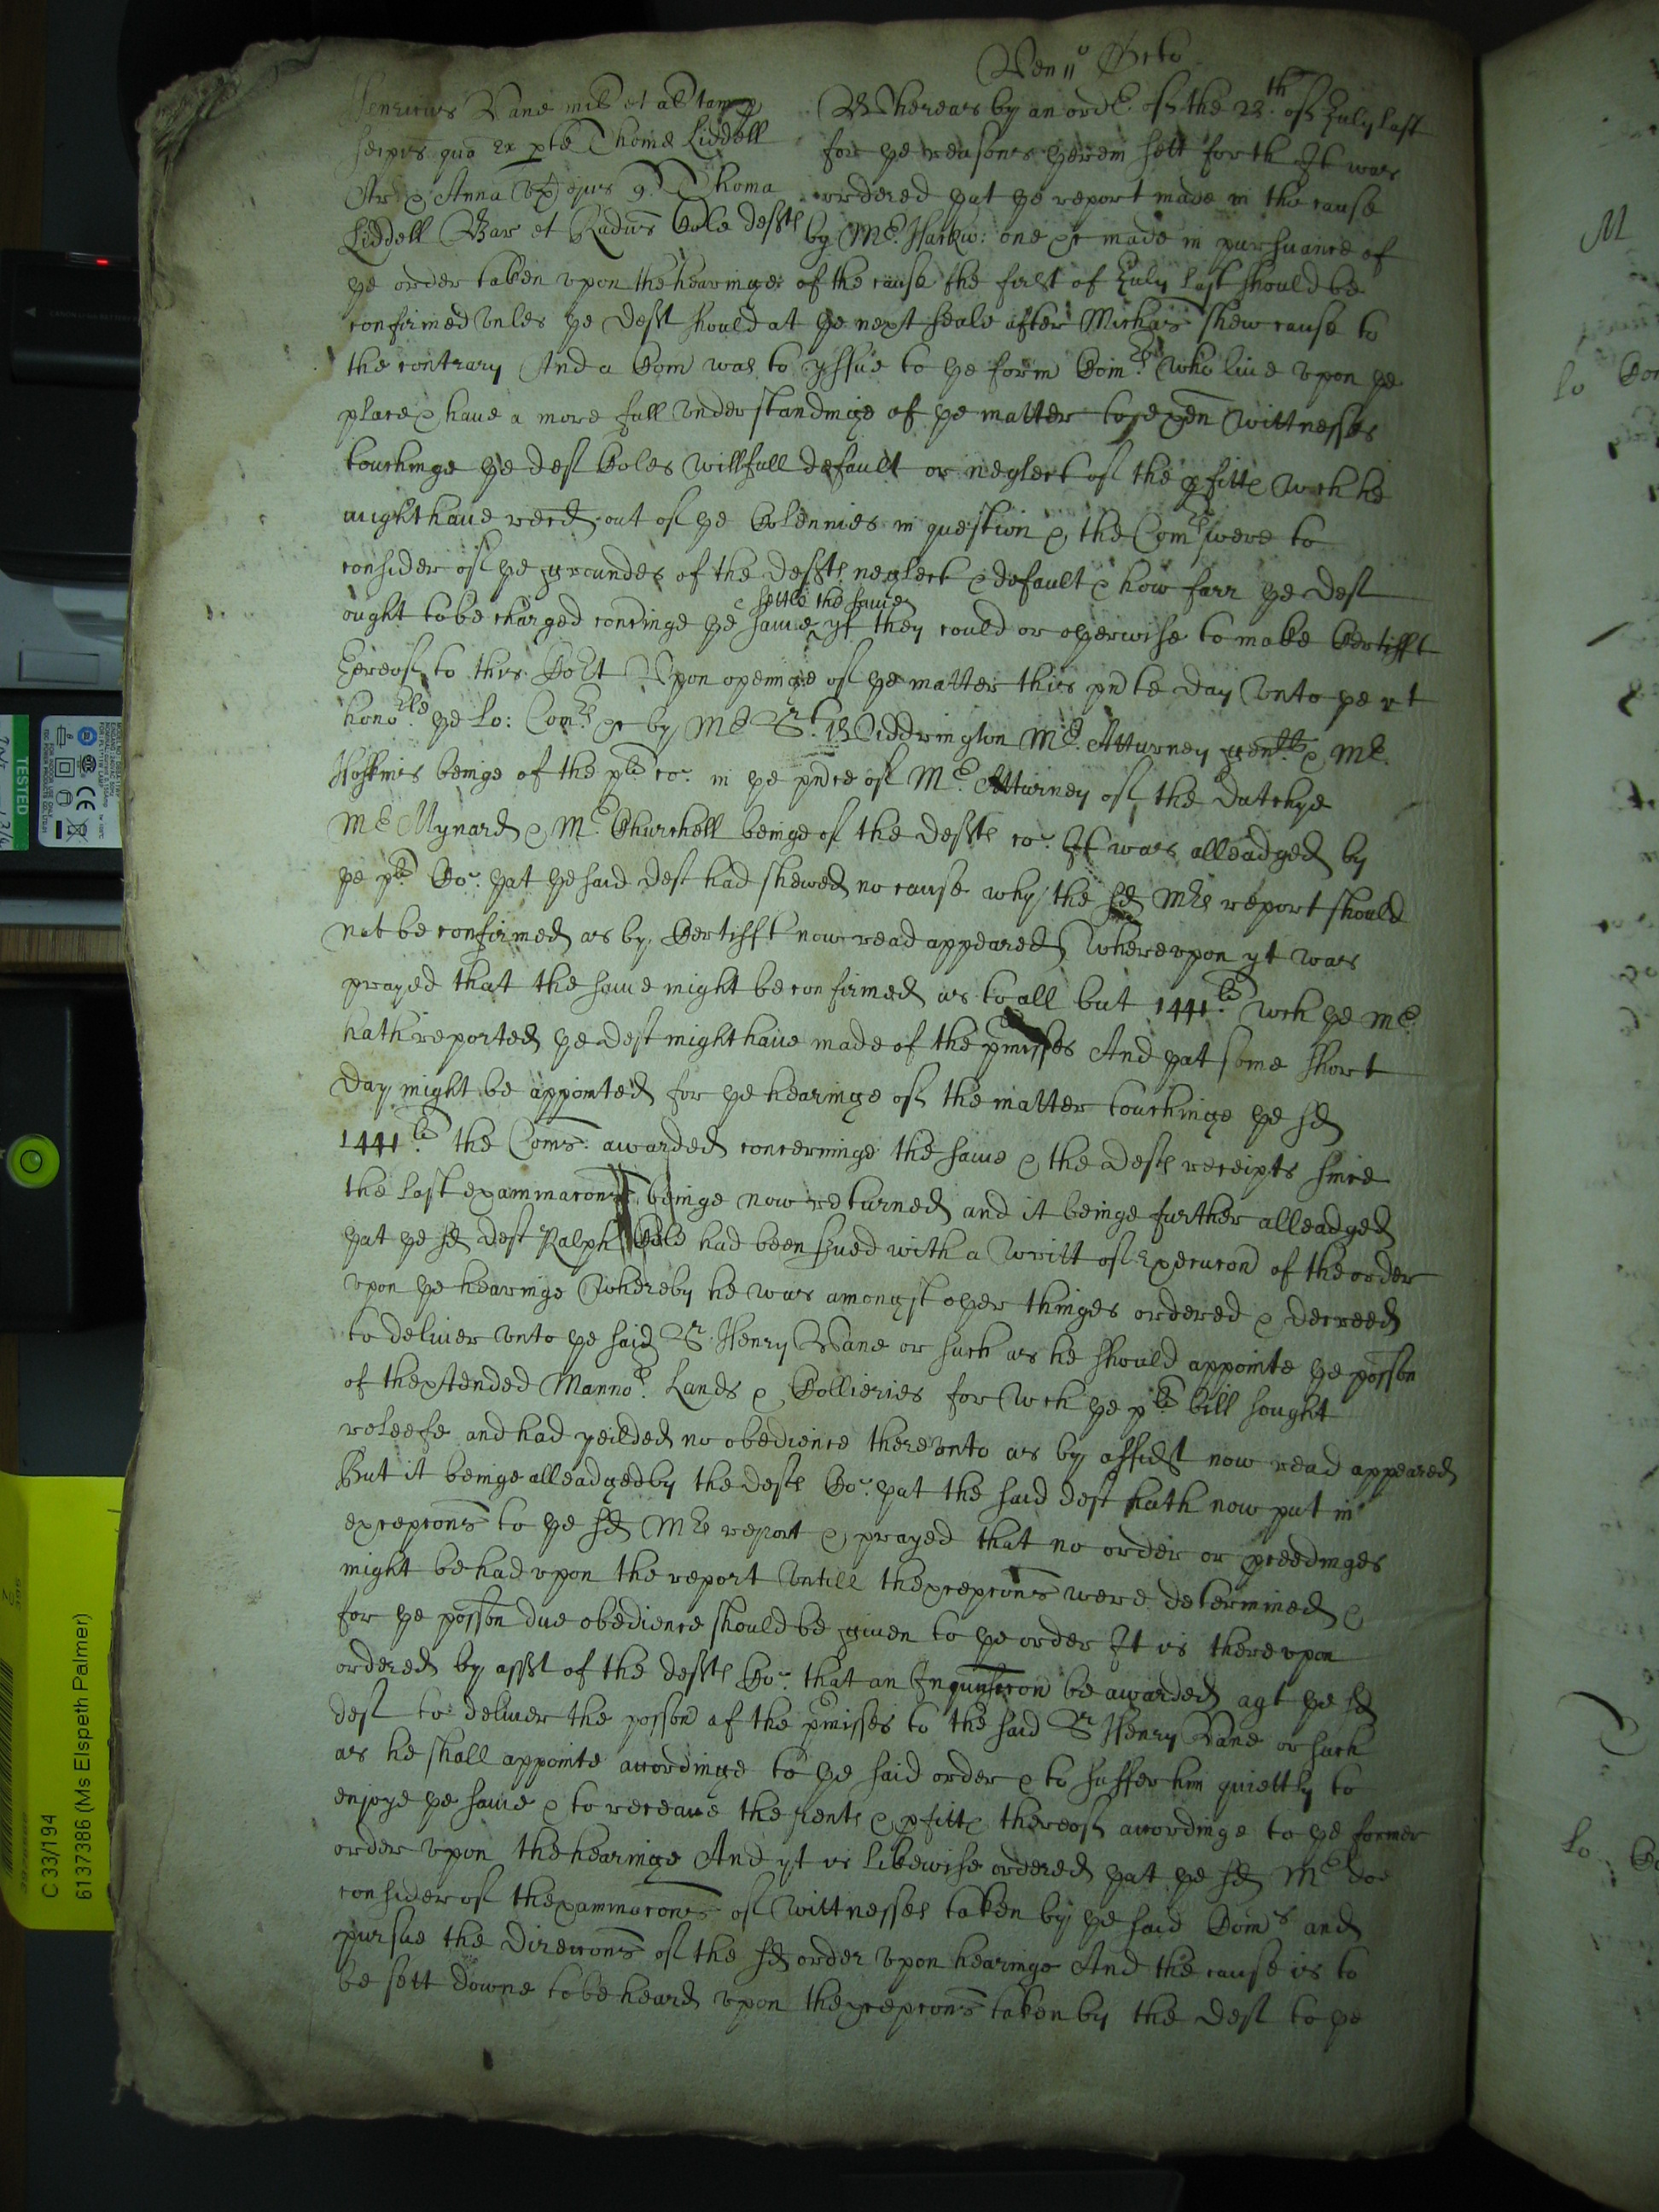 Ven 11° Octo
Henricus Vane mil et al tam p
seipis quā ex pte Thome Liddell
Ar & Anna vx ejus q. Thoma
Liddell Bar et Radus Cole defts
Whereas by an ordr. of the 28th of July last
for ye reasons yerein sett forth It was
ordered yat ye report made in the cause
by Mr. Harkw: one &c made in pursuance of
ye order taken vpon the hearinge of the cause the first of July last should be
confirmed vnles ye deft should at ye next seale after Michas shew cause to
the contrary And a Com was to yssue to ye form Comrs who liue vpon ye
place & haue a more full vnderstandinge of ye matter to exen wittnesses
touchinge ye def Coles willfull default or neglect of the pfitts wch he
might haue reced out of ye Colennies in question & the Comrs were to
consider of ye groundes of the defts neglect & default & how farr ye def
settle the same
ought to be charged concinge ye same yf they could or oyerwise to make Certifft
hereof to this Cort Vpon openinge of ye matter this pnte day vnto ye rt
honoble ye Lo: Comrs &c by Mr Sr. Widdrington Mr. Atturney genll & Mr.
Hoskins beinge of the plts co. in ye pnce of Mr. Atturney of the Dutchye
Mr Mynard & Mr. Churchell beinge of the defts co. It was alleadged by
ye plts Co. yat ye said def had shewed no cause why the sd Mrs report should
not be confirmed as by Certifft now read appeared Wherevpon yt was
prayed that the same might be confirmed as to all but 1441li wch ye Mr.
hath reported ye def might haue made of the pmisses And yat some short
day might be appointed for ye hearinge of the matter touchinge ye sd
1441li the Coms. awarded concerninge the same & the defts receipts since
the last examinacons beinge now returned and it beinge further alleadged
yat ye sd def Ralph Cole had been sued with a writt of Execucon of the order
vpon ye hearinge Whereby he was amongst oyer thinges ordered & decreed
to deliuer vnto ye said Sr. Henry Vane or such as he should appointe ye posson
of thextended Mannor. Lands & Collieries for wch ye plts bill sought
releefe and had yeilded no obedience therevnto as by affidt now read appeared
But it beinge alleadged by the defts Co. yat the said def hath now put in
excepcons to ye sd Mrs report & prayed that no order or pceedinges
might be had vpon the report vntill thexcepcons were determined &
for ye posson due obedience should be giuen to ye order It is therevpon
ordered by asst of the defts Co. that an Injunccon be awarded agt ye sd
def to deliuer the posson of the pmisses to the said Sr Henry Vane or such
as he shall appointe accordinge to ye said order & to suffer him quiettly to
enjoye ye same & to receaue the rents & pfitts thereof accordinge to ye former
order vpon the hearinge And yt is likewise ordered yat ye sd Mr doe
consider of thexaminacons of Wittnesses taken by ye said Coms and
pursue the direccons of the sd order vpon hearinge And the cause is to
be sett downe to be heard vpon thexcepcons taken by the def to ye
M
Lo Co
Lo
TESTED
C 33/194
6137386 (Ms Elspeth Palmer)